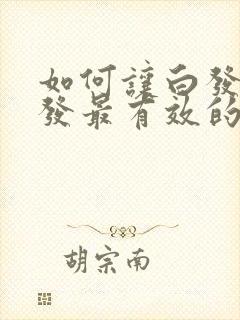 如何讓白發
發最有效的
胡宗南